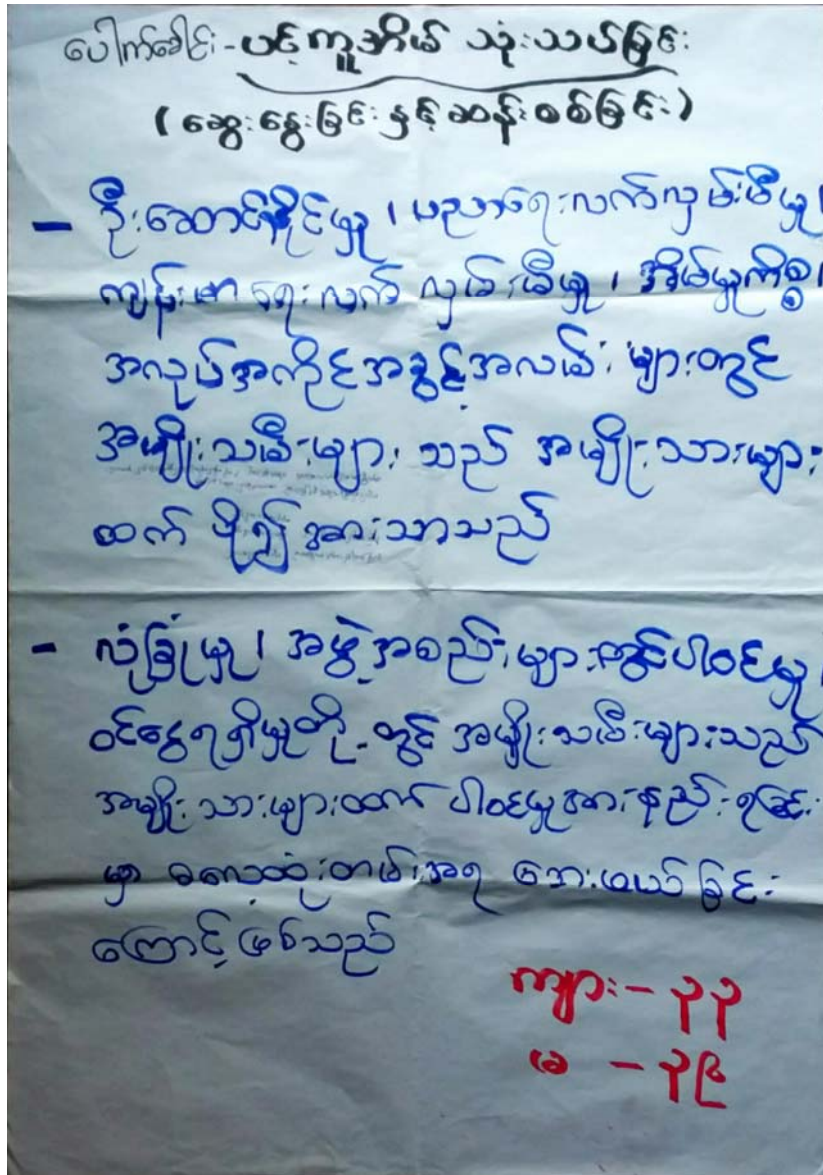 ပေါက်ခေါင်း - ပင့်ကူအိမ် သုံးသပ်ခြင်း
(ဆွေးနွေးခြင်းနှင့်ဆန်းစစ်ခြင်း)
- ဦးဆောင်နိုင်မှု၊ ပညာရေးလက်လှမ်းမီမှု၊
ကျန်းမာရေးလက်လှမ်းမီမှု၊ အိမ်မှုကိစ္စ၊
အလုပ်အကိုင်အခွင့်အလမ်းများတွင်
အမျိုးသမီးများသည် အမျိုးသားများ
ထက် ပို၍အားသာသည်
- လုံခြုံမှု၊ အဖွဲ့အစည်းများတွင်ပါဝင်မှု၊
ဝင်ငွေရရှိမှုတို့တွင် အမျိုးသမီးများသည်
အမျိုးသားများထက် ပါဝင်မှုအားနည်းရခြင်း
မှာ ဓလေ့ထုံးတမ်းအရ ဘေးဖယ်ခြင်း
ကြောင့်ဖြစ်သည်
ကျား - ၃၃
မ - ၃၉